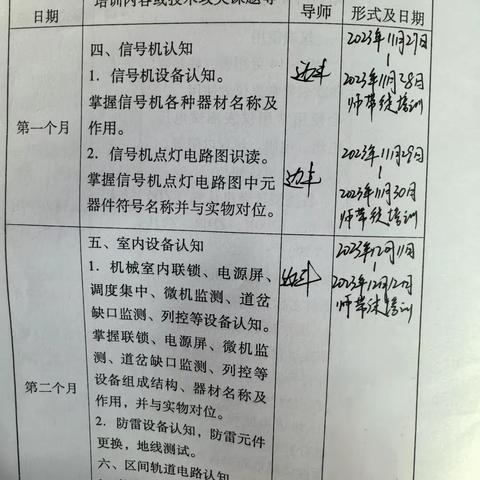 培训内容或技术攻关课题等
日期
导师
形式及日期
四、信号机认知
1．信号机设备认知。
掌握信号机各种器材名称及
作用。
2023年11月27日
2023年11月28日
师带徒培训
第一个月
2．信号机点灯电路图识读。
掌握信号机点灯电路图中元
器件符号名称并与实物对位。
2023年11月29日
2023年11月30日
师带徒培训
五、室内设备认知
1．机械室内联锁、电源屏、
调度集中、微机监测、道岔
缺口监测、列控等设备认知。
掌握联锁、电源屏、微机监
测、道岔缺口监测、列控等
设备组成结构、器材名称及
作用，并与实物对位。
2023年12月1日
2023年12月2日
师带徒培训
第二个月
2．防雷设备认知，防雷元件
更换，地线测试。
六、区间轨道电路认知